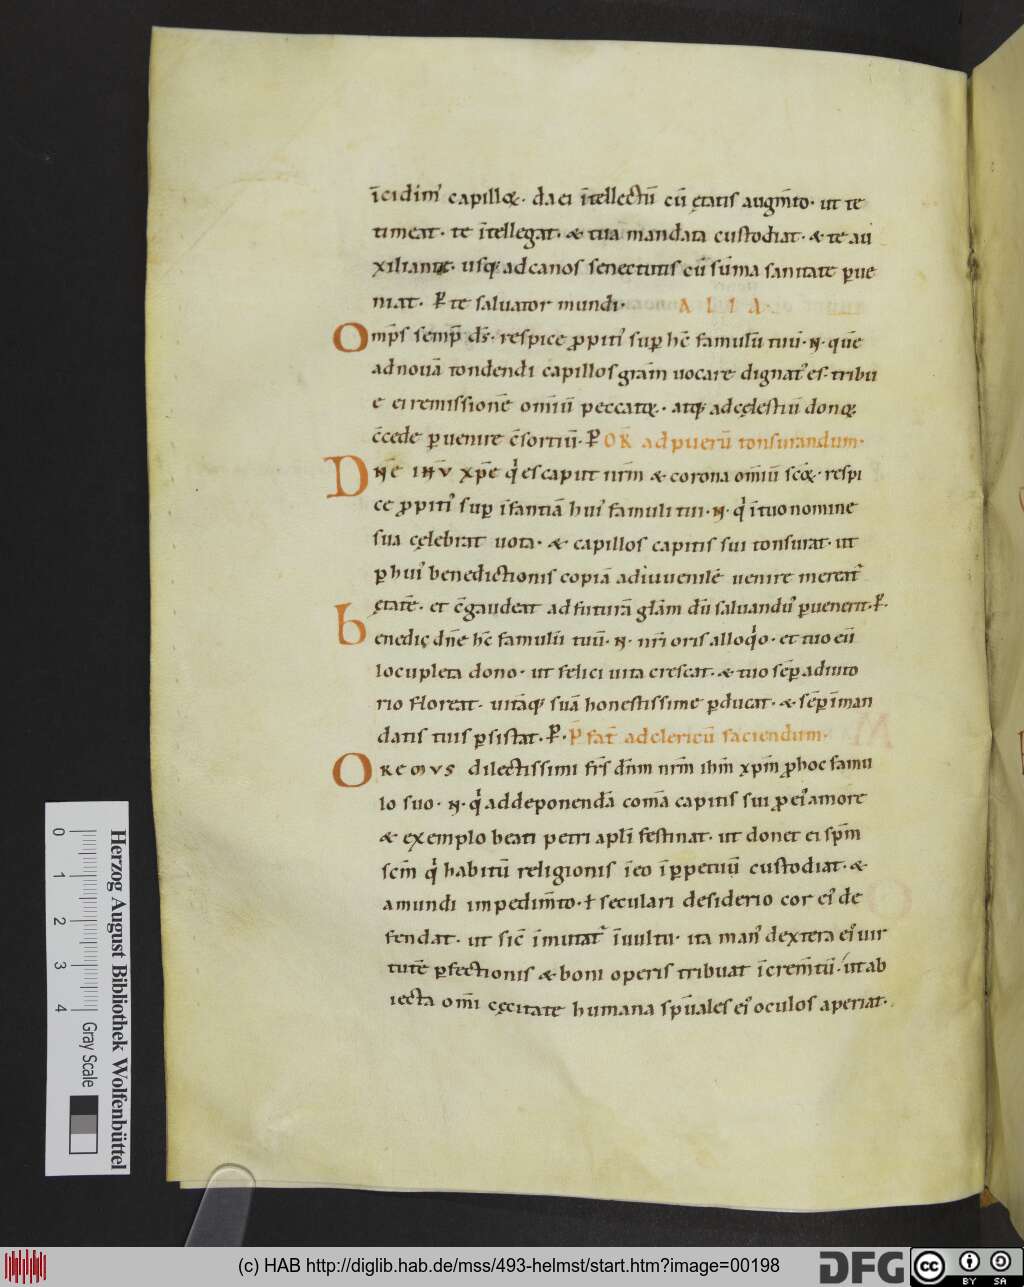 īcidim᾽ capillos. da ei ītellectū cū ętatis augm̄to. ut te
timeat. te ītellegat. & tua mandata custodiat. & te au
xiliante. usq; ad canos senectutis cū sūma sanitate ꝑue
niat. ꝑ te saluator mundi. ALIA.
Omp̄s semp̄ ds̄. respice ꝓpiti᾽ suꝑ hc̄ famulū tuū. N. quē
ad nouā tondendi capillos grām uocare dignat᾽ es. tribu
e ei remissionē omīū peccatoꝝ. atq; ad cęlestiū donoꝝ
c̄cede ꝑuenire c̄sortiū. ꝑ OR ad puerū tonsurandum.
Dnē IHV xpē qi es caput nr̄m & corona omīū scōꝝ. respi
ce ꝓpiti᾽ suꝑ īfantiā hui᾽ famuli tui. N. qi ī tuo nomine
sua cęlebrat uota. & capillos capitis sui tonsurat. ut
ꝑ hui᾽ benedictionis copiā ad iuuenilē uenire mereat᾽
ętatē. et c̄gaudeat ad futurā glām dū saluand᾽ ꝑuenerit. ꝑ.
benedic dn̄e hc̄ famulū tuū. N. nr̄i oris alloqio. et tuo eū
locupleta dono. ut felici uita crescat. & tuo sēp adiuto
rio floreat. uitāq; suā honestissime ꝑducat. & sēp ī man
datis tuis ꝑsistat. ꝑ. P̄fat̄ ad clericū faciendum.
OREMVS dilectissimi fr̄s dn̄m nr̄m ihm̄ xpm̄ ꝓ hoc famu
lo suo. N. qi ad deponendā comā capitis sui ꝓ ei᾽ amore
& exemplo beati petri apli᾽ festinat. ut donet ei spm̄
scm̄ qi habitū religionis ī eo ī ꝑpetuū custodiat. &
a mundi impedim̄to. ƚ seculari desiderio cor ei᾽ de
fendat. ut sic̄ īmutat᾽ ī uultu. ita man᾽ dextera ei᾽ uir
tutē ꝑfectionis & boni operis tribuat īcrem̄tū. ut ab
iecta om̄i cęcitate humana spūales ei᾽ oculos aperiat.
0 1 2 3 4
Gray Scale
Herzog August Bibliothek Wolfenbüttel
(c) HAB http://diglib.hab.de/mss/493-helmst/start.htm?image=00198
DFG
cc BY SA